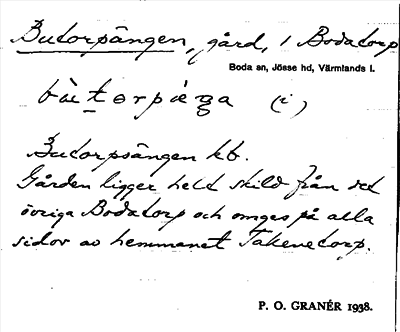 Butorpängen, gård, i Bodatorp
Boda sn, Jösse hd, Värmlands l.
bùtɵrpèŋa (i)
Butorpsängen kb.
Gården ligger helt skild från det
övriga Bodatorp och omges på alla
sidor av hemmanet Takenetorp.
P. O. GRANÉR 1938.